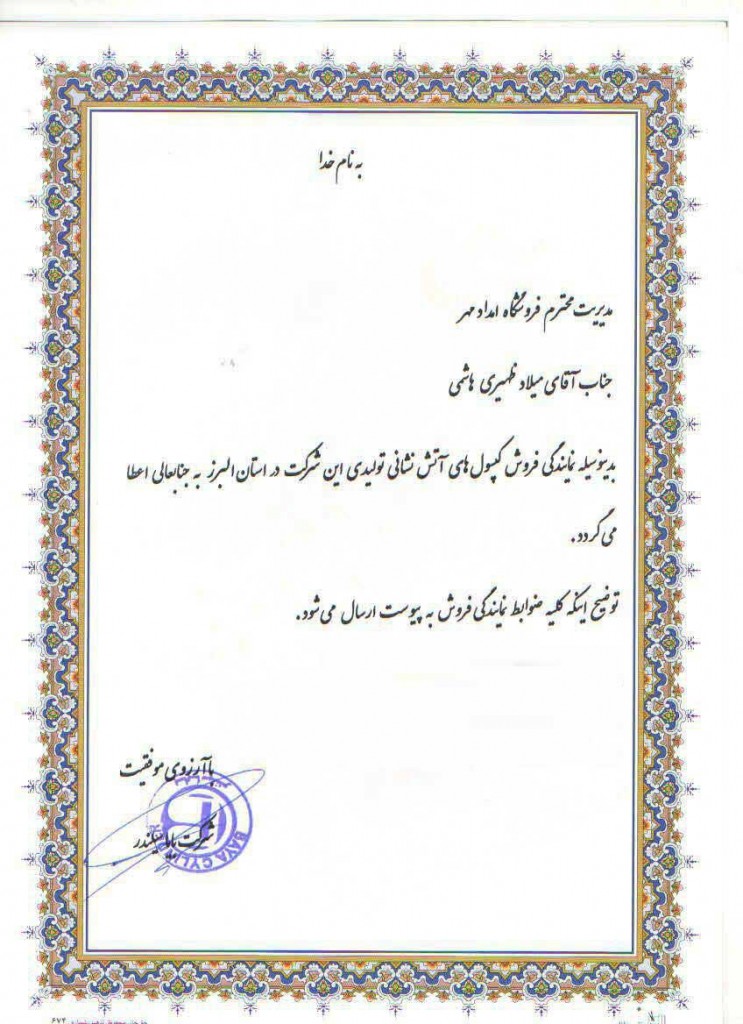 به نام خدا
مدیریت محترم فروشگاه امداد مهر
جناب آقای میلاد ظهیری هاشمی
بدینوسیله نمایندگی فروش کپسول های آتش نشانی تولیدی این شرکت در استان البرز به جنابعالی اعطا
می گردد.
توضیح اینکه کلیه ضوابط نمایندگی فروش به پیوست ارسال می شود.
با آرزوی موفقیت
شرکت بایا سیلندر
BAYA CYLIN
۶۷۴